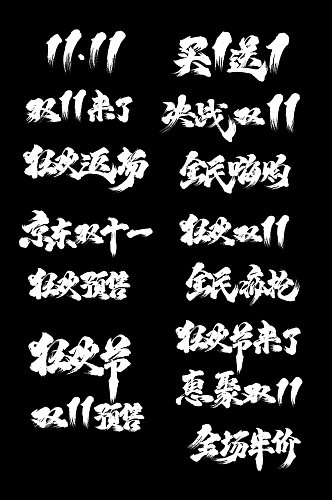 11.11
双11来了
狂欢返场
京东双十一
狂欢预售
狂欢节
双11预售
买1送1
决战双11
全民嗨购
狂欢双11
全民疯抢
狂欢节来了
惠聚双11
全场半价